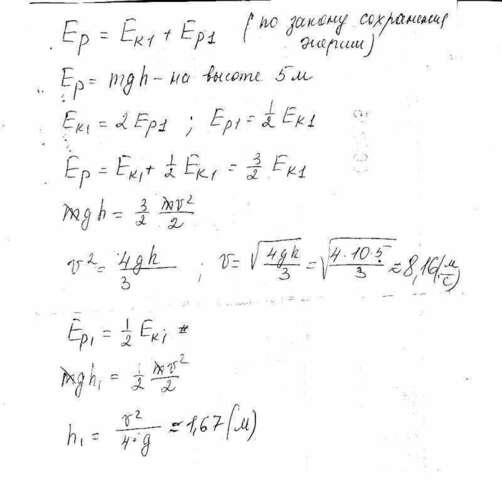 Eр = Eк1 + Eр1 (по закону сохранения энергии)
Eр = mgh – на высоте 5м
Eк1 = 2Eр1 ; Eр1 = 1/2 Eк1
Eр = Eк1 + 1/2 Eк1 = 3/2 Eк1
mgh = 3/2 mv²/2
v² = 4gh/3 ; v = √(4gh/3) = √(4·10·5/3) ≈ 8,16 (м/с)
Eр1 = 1/2 Eк1
mgh1 = 1/2 mv²/2
h1 = v²/4·g ≈ 1,67 (м)